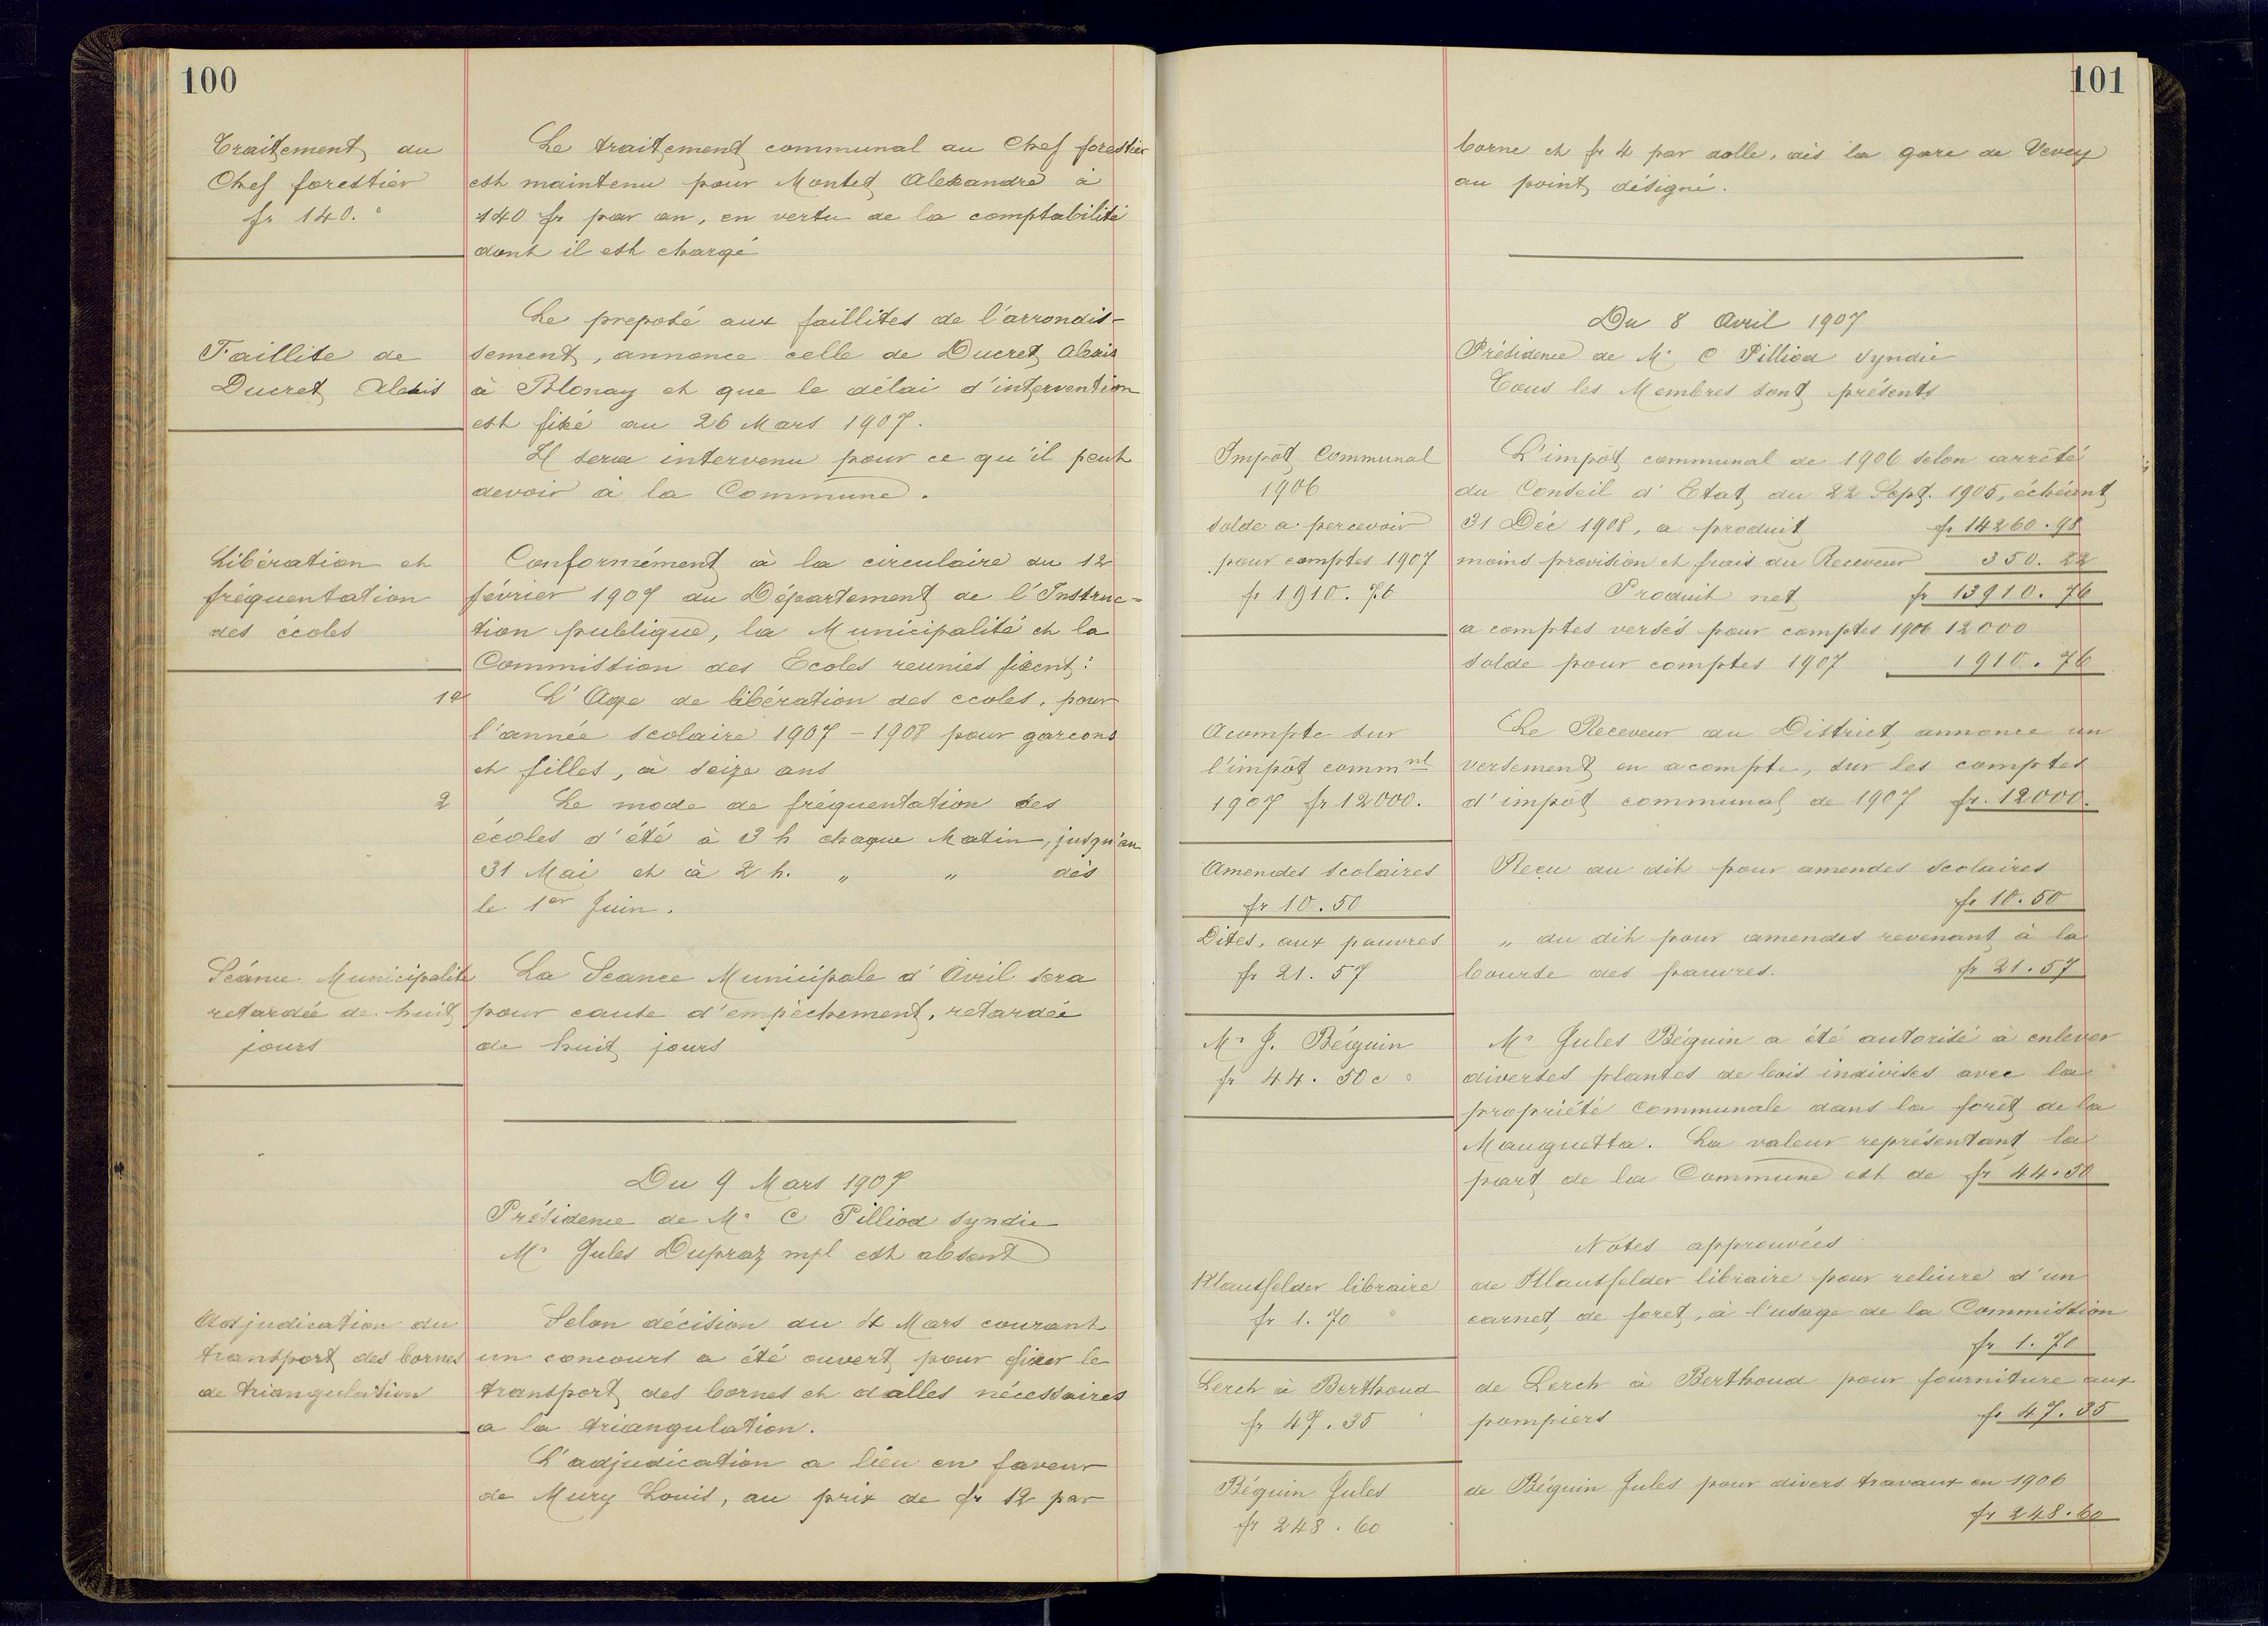 100
Traitement du
Chef forestier
fr 140.
Le traitement communal au Chef forestier
est maintenu pour Montet Alexandre à
140 fr par an, en vertu de la comptabilité
dont il est chargé
Le preposé aux faillites de l'arrondis-
Faillite de
Ducret Alexis
sement, annonce celle de Ducret Alexis
à Blonay et que le délai d'intervention
est fixé au 26 Mars 1907.
Il sera intervenu pour ce qu'il peut
devoir à la Commune.
Libération et
fréquentation
des écoles
Conformément à la circulaire du 12
février 1907 du Département de l'Instruc-
tion publique, la Municipalité et la
Commission des Ecoles reunies fixent:
L'Age de libération des ecoles, pour
l'année scolaire 1907 - 1908 pour garcons
et filles, à seize ans
2 Le mode de fréquentation des
écoles d'été à 3 h chaque Matin, jusqu'au
31 Mai et à 2 h. " " dès
le 1er Juin.
Séance Municipalite
retardée de huit
jours
La Seance Municipale d'Avril sera
pour cause d'empêchement, retardée
de huit jours
Du 9 Mars 1907
Présidence de Mr C Pilliod syndic
Mr Jules Dupraz mpl est absent
Adjudication du
transport des bornes
de triangulation
Selon décision du 4 Mars courant
un concours a été ouvert pour fixer le
transport des bornes et dalles nécessaires
a la triangulation.
L'adjudication a lieu en faveur
de Mury Louis, au prix de fr 12 par
101
borne et fr 4 par dalle, dès la gare de Vevey
au point désigné.
Du 8 Avril 1907
Présidence de Mr C Pilliod Syndic
Tous les Membres sont présents
Impôt Communal
1906
solde a percevoir
pour comptes 1907
fr 1910.76
L'impôt communal de 1906 selon arrêté
du Conseil d'Etat du 22 Sept. 1905, échéant
31 Déc 1908, a produit fr 14260.98
moins provision et frais du Receveur 350.22
Produit net fr 13910.76
a comptes versés pour comptes 1906 12000
solde pour comptes 1907 1910.76
Acompte sur
l'impôt commnl
1907 fr 12000.
Le Receveur du District annonce un
versement en acompte, sur les comptes
d'impôt communal de 1907 fr. 12000.
Amendes scolaires
fr 10.50
Reçu du dit pour amendes scolaires
fr 10.50
Dites, aux pauvres
fr 21.57
" du dit pour amendes revenant à la
bourse des pauvres. fr 21.57
Mr J. Béguin
fr 44.50 c
Mr Jules Béguin a été autorisé à enlever
diverses plantes de bois indivises avec la
propriété Communale dans la forêt de la
Mauguetta. La valeur représentant la
part de la Commune est de fr 44.50
Notes approuvées
Klausfelder libraire
fr 1.70
de Klausfelder libraire pour reliure d'un
carnet de foret, à l'usage de la Commission
fr 1.70
Lerch à Berthoud
fr 47.35
de Lerch à Berthoud pour fourniture aux
pompiers fr 47.35
Béguin Jules
fr 248.60
de Béguin Jules pour divers travaux en 1906
fr 248.60